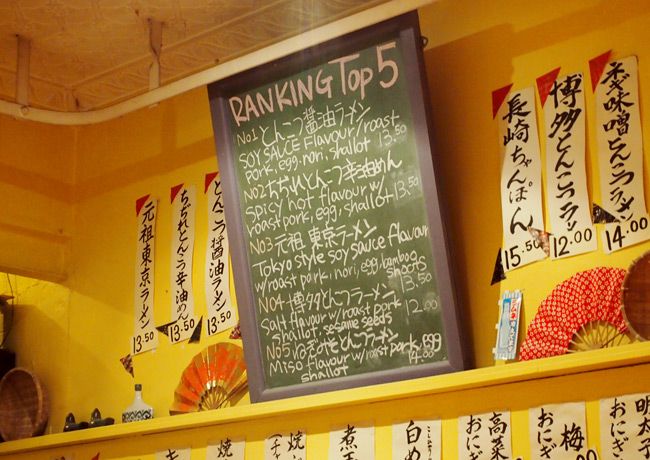 RANKING Top 5
No1 とんこつ醤油ラーメン
SOY SAUCE Flavour w/roast
pork, egg, nori, shallot 13.50
No2 ちぢれとんこつ辛油めん
Spicy hot flavour w/
roast pork, egg, shallot 13.50
No3 元祖 東京ラーメン
Tokyo style soy sauce flavour
w/roast pork, nori, egg, bamboo
shoots
13.50
No4 博多とんこつラーメン
Salt flavour w/roast pork 12.00
shallot, sesame seeds
No5 ねぎみそとんこつラーメン
Miso flavour w/roast pork, egg
shallot 14.00
元祖東京ラーメン
13.50
ちぢれとんこつ辛油めん
13.50
とんこつ醤油ラーメン
13.50
長崎ちゃんぽん
15.50
博多とんこつラーメン
12.00
ネギ味噌とんこつラーメン
14.00
ラムネ
焼
焼
煮玉
白め
高菜
おにぎ
梅
おにぎ
明太子
おにぎ